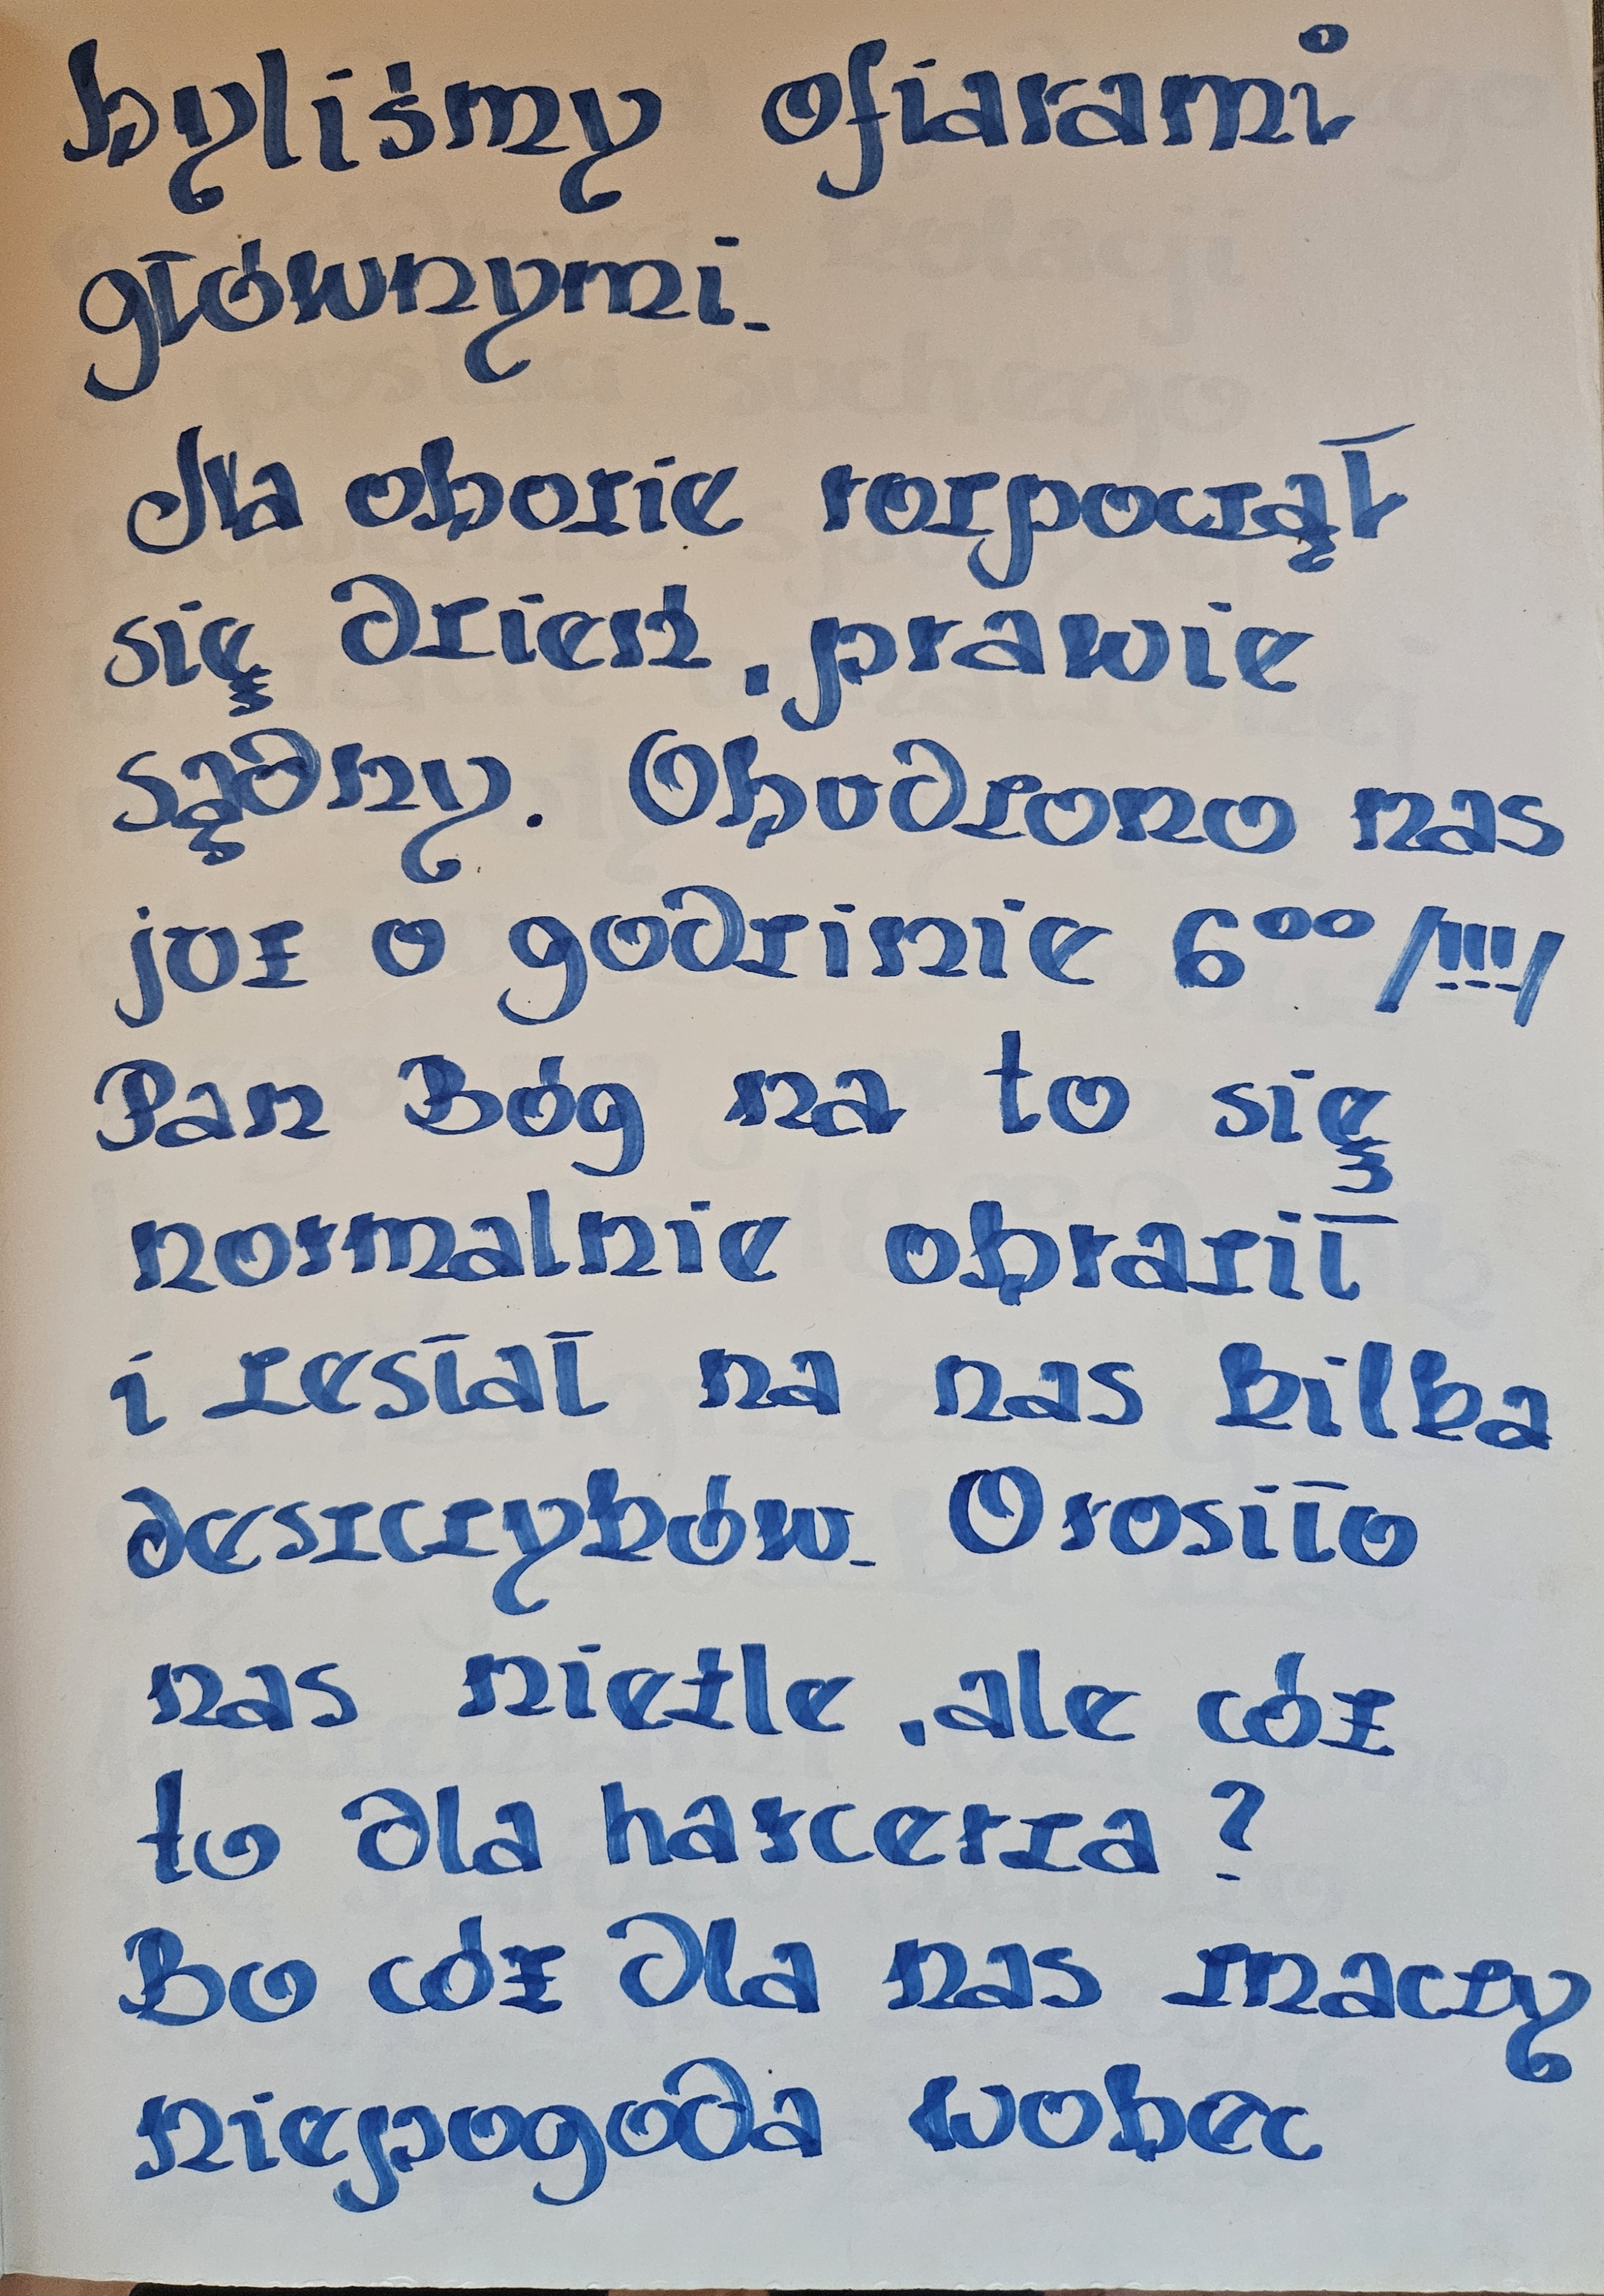 byliśmy ofiarami
głównymi.
Na obozie rozpoczął
się dzień, prawie
sądny. Obudzono nas
już o godzinie 6⁰⁰ /!!!/
Pan Bóg na to się
normalnie obraził
i zesłał na nas kilka
deszczyków. Orosiło
nas nieźle, ale cóż
to dla harcerza?
Bo cóż dla nas znaczy
niepogoda wobec